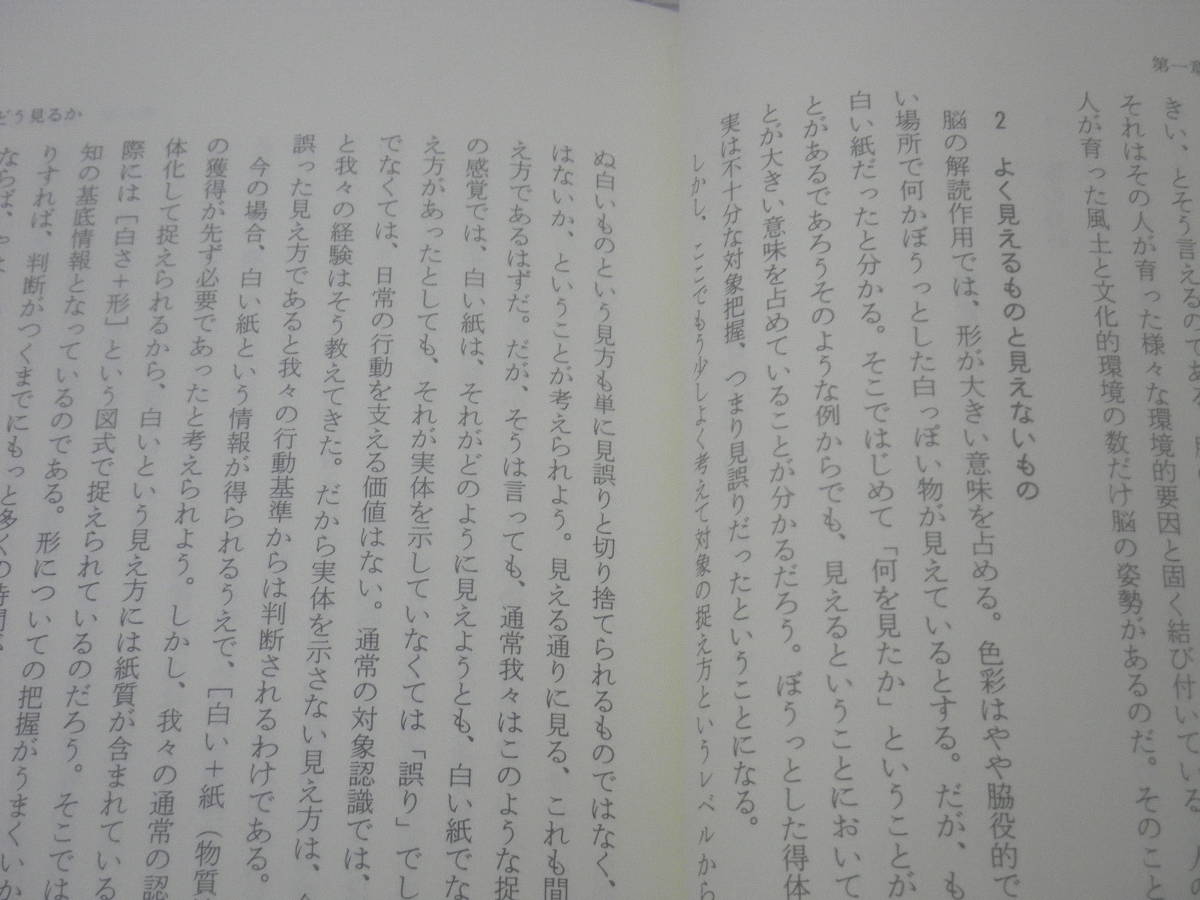 第一章
きい、とそう言えるのである。
それはその人が育った様々な環境的要因と固く結び付いている。人の
人が育った風土と文化的環境の数だけ脳の姿勢があるのだ。そのこと
2 よく見えるものと見えないもの
脳の解読作用では、形が大きい意味を占める。色彩はやや脇役的で
い場所で何かぼうっとした白っぽい物が見えているとする。だが、も
白い紙だったと分かる。そこではじめて「何を見たか」ということが
とがあるであろうそのような例からでも、見えるということにおいて
とが大きい意味を占めていることが分かるだろう。ぼうっとした得体
実は不十分な対象把握、つまり見誤りだったということになる。
しかし、ここでもう少しよく考えて対象の捉え方というレベルから
どう見るか
ぬ白いものという見方も単に見誤りと切り捨てられるものではなく、
はないか、ということが考えられよう。見える通りに見る、これも間
え方であるはずだ。だが、そうは言っても、通常我々はこのような捉
の感覚では、白い紙は、それがどのように見えようとも、白い紙でな
え方があったとしても、それが実体を示していなくては「誤り」でし
でなくては、日常の行動を支える価値はない。通常の対象認識では、
と我々の経験はそう教えてきた。だから実体を示さない見え方は、
誤った見え方であると我々の行動基準からは判断されるわけである。
今の場合、白い紙という情報が得られるうえで、［白い＋紙（物質
の獲得が先ず必要であったと考えられよう。しかし、我々の通常の認
体化して捉えられるから、白いという見え方には紙質が含まれている
際には［白さ＋形］という図式で捉えられているのだろう。そこでは
知の基底情報となっているのである。形についての把握がうまくいか
りすれば、判断がつくまでにもっと多くの時間が
ならば、